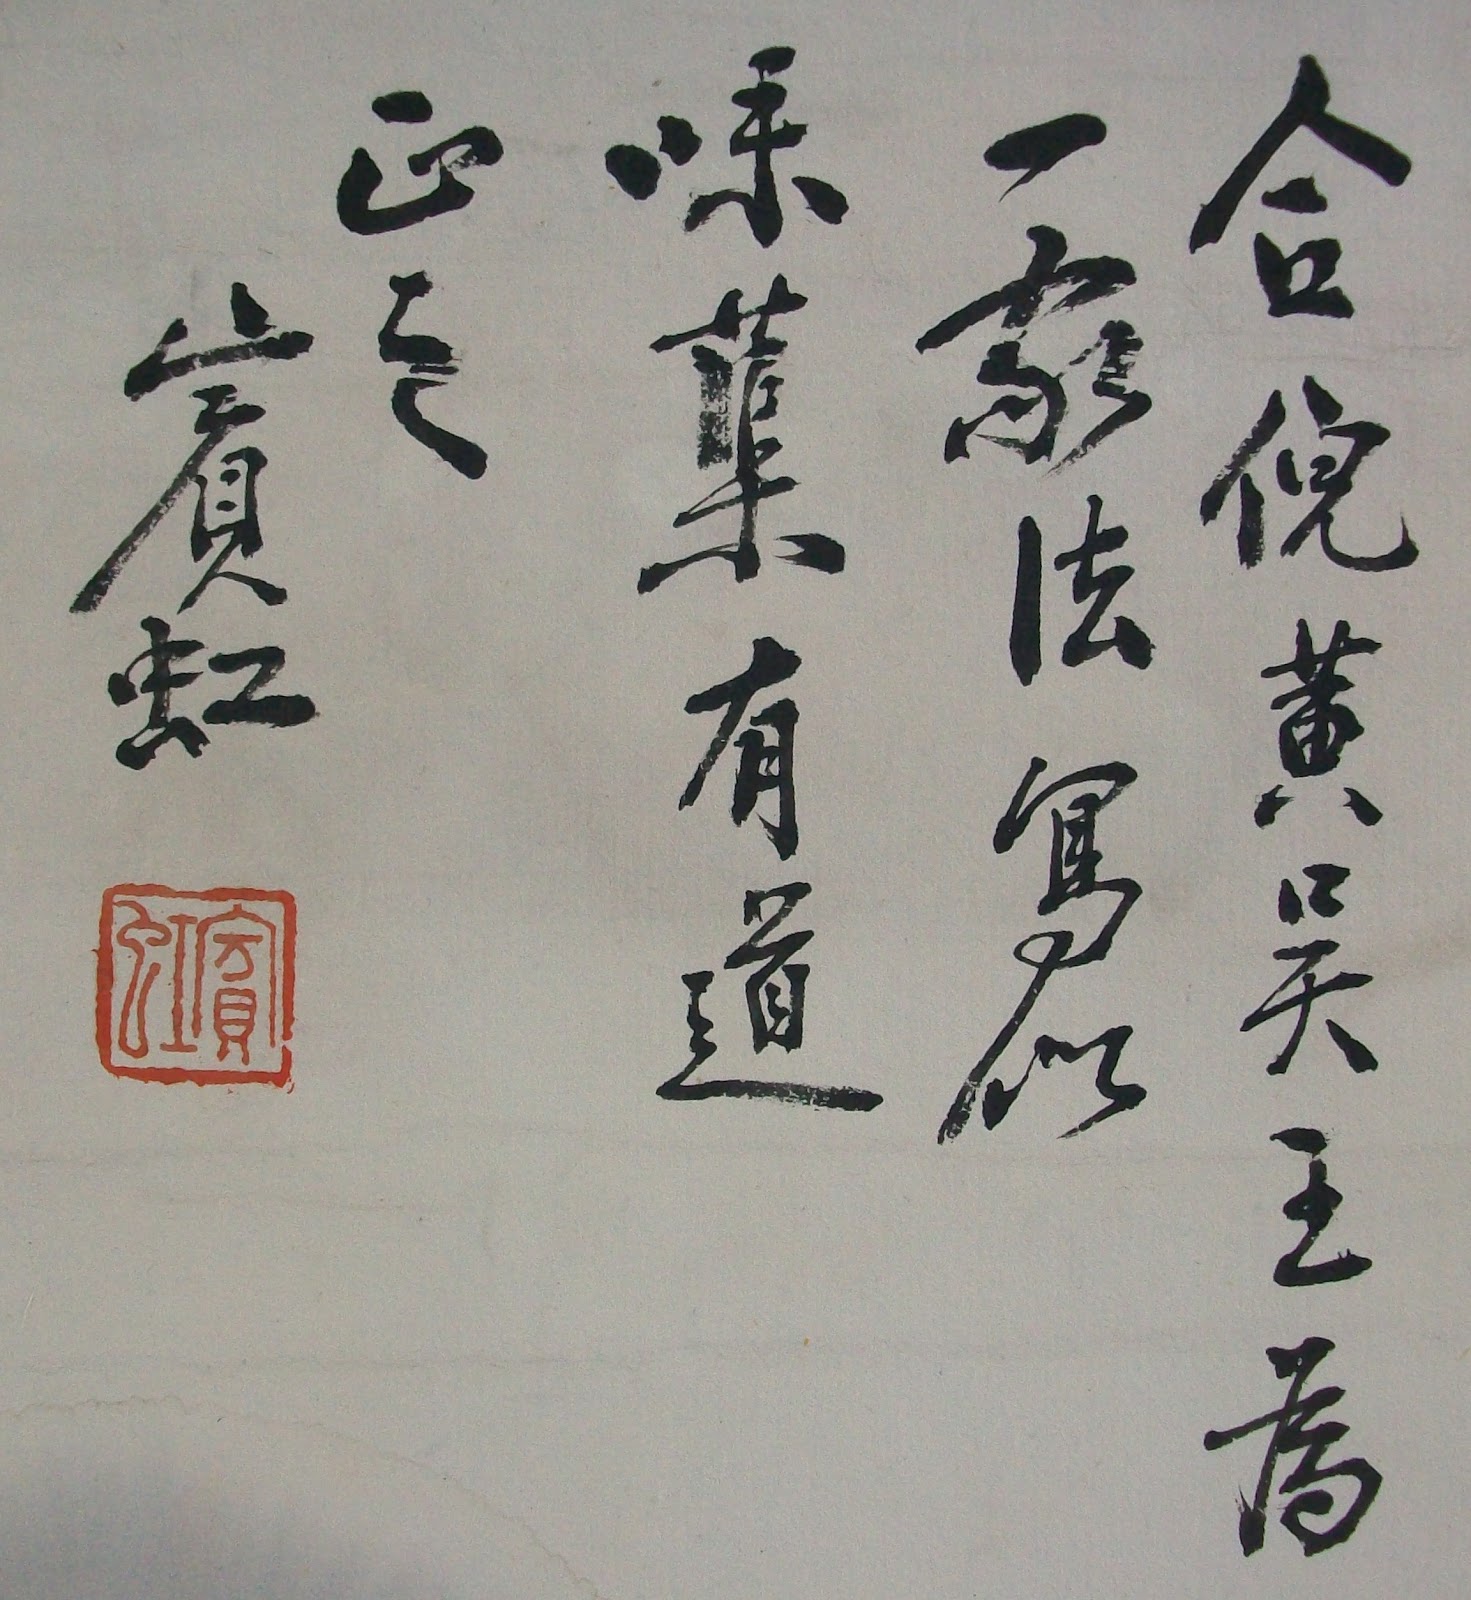 合倪黄吴王為
一家法寫似
味蕖有道
正之
賓虹
賓虹